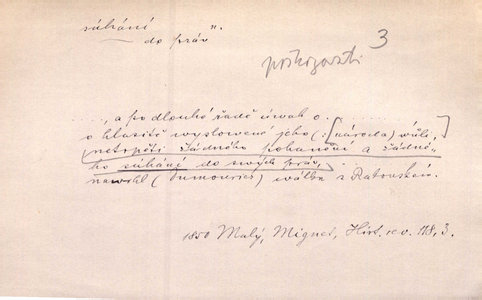 sáhání n.
do práv
3
..., a po dlouhé řadě úvah o
o hlasitě vyslovené jeho (: [národa) vůli,
netrpěti žádného pohanění a žádné-
ho sáhání do svých práv,] ...
navrhl (Dumouriez) válku s Rakouskem.
1850 Malý, Mignet, Hist. rev. 118, 3.